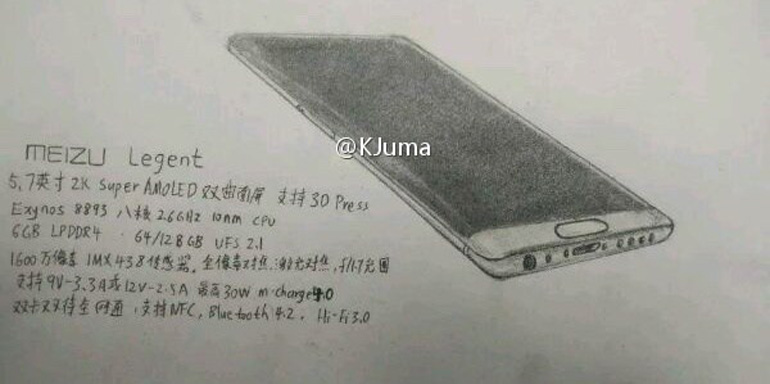 @KJuma
MEIZU Legent
5.7英寸 2K Super AMOLED 双曲面屏 支持3D Press
Exynos 8893 八核 2.6GHz 10nm CPU
6GB LPDDR4 · 64/128GB UFS 2.1
1600万像素 IMX438传感器, 全像素对焦, 激光对焦, f/1.7光圈
支持9V-3.3A或12V-2.5A 最高30W m·charge4.0
双卡双待全网通, 支持NFC, Bluetooth 4.2, Hi-Fi3.0